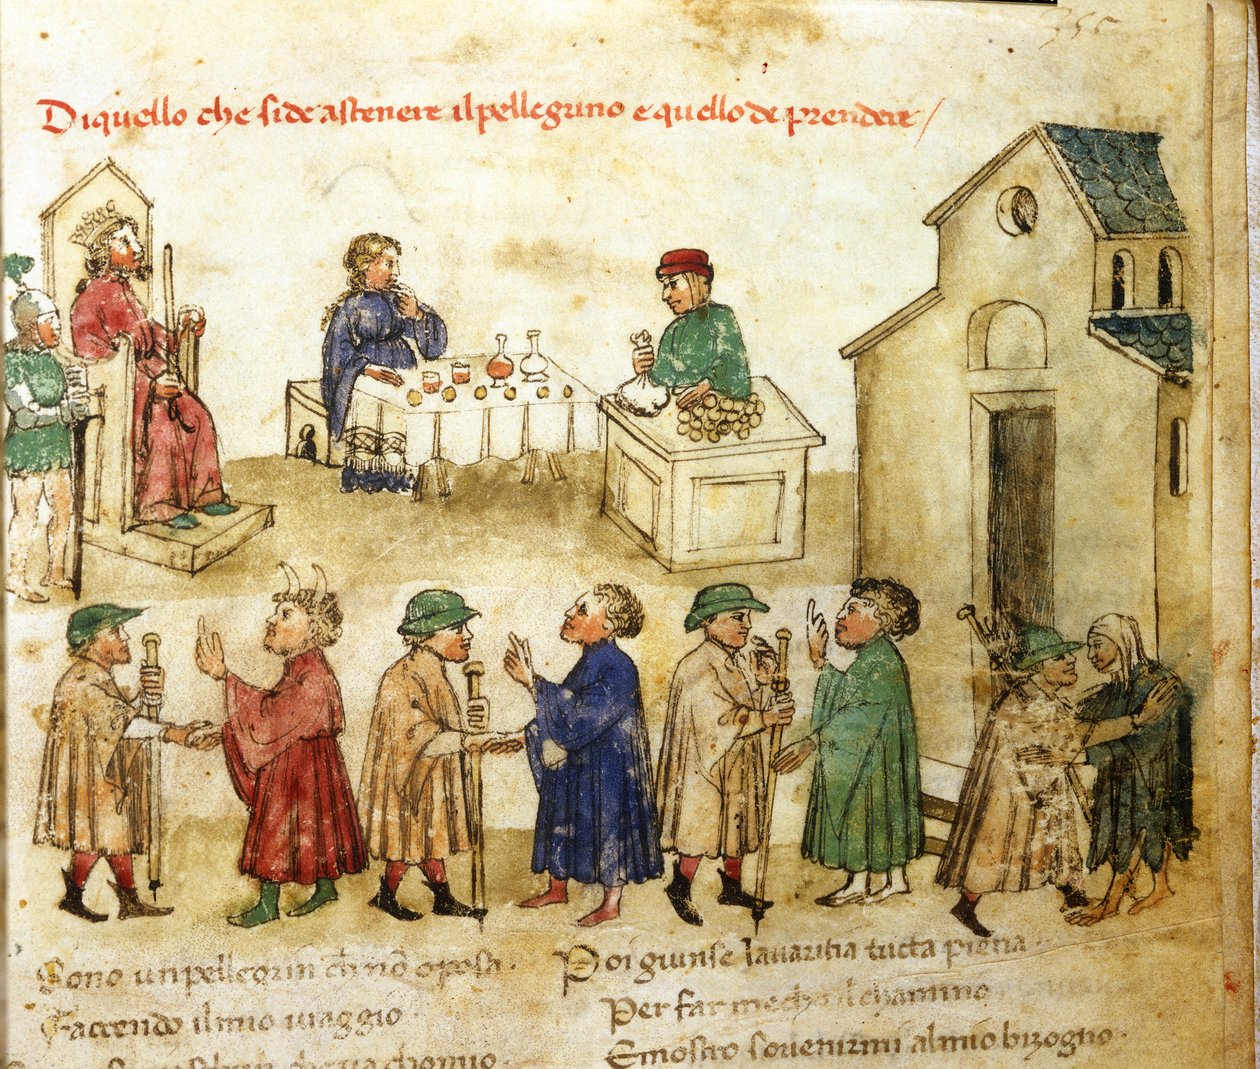 Di quello che si de astenere il pellegrino e quello de prendere
Sono un pellegrin ch nō oposa
Faccendo il mio viaggio
Poi giunse lavaritia tucta piena
Per far mecho il chamino
E mostro sovenirmi al mio bizogno